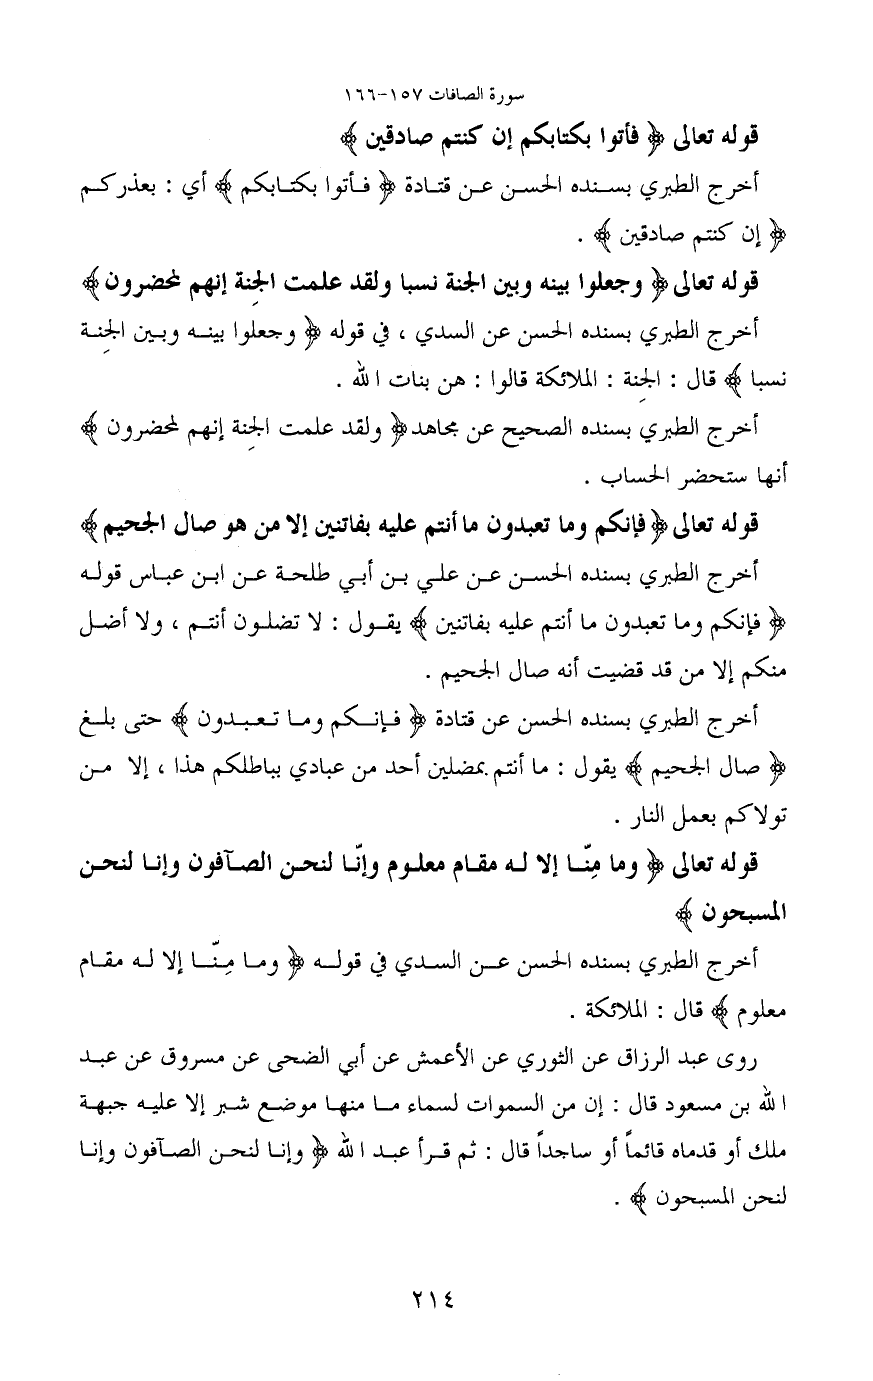 سورة الصافات ١٥٧-١٦٦
قوله تعالى ﴿ فأتوا بكتابكم إن كنتم صادقين ﴾
أخرج الطبري بسنده الحسن عن قتادة ﴿ فأتوا بكتابكم ﴾ أي : بعذركم
﴿ إن كنتم صادقين ﴾ .
قوله تعالى ﴿ وجعلوا بينه وبين الجنة نسبا ولقد علمت الجِنة إنهم لمحضرون ﴾
أخرج الطبري بسنده الحسن عن السدي ، في قوله ﴿ وجعلوا بينه وبين الجِنة
نسبا ﴾ قال : الجِنة : الملائكة قالوا : هن بنات الله .
أخرج الطبري بسنده الصحيح عن مجاهد ﴿ ولقد علمت الجِنة إنهم لمحضرون ﴾
أنها ستحضر الحساب .
قوله تعالى ﴿ فإنكم وما تعبدون ما أنتم عليه بفاتنين إلا من هو صال الجحيم ﴾
أخرج الطبري بسنده الحسن عن علي بن أبي طلحة عن ابن عباس قوله
﴿ فإنكم وما تعبدون ما أنتم عليه بفاتنين ﴾ يقول : لا تضلون أنتم ، ولا أضل
منكم إلا من قد قضيت أنه صال الجحيم .
أخرج الطبري بسنده الحسن عن قتادة ﴿ فإنكم وما تعبدون ﴾ حتى بلغ
﴿ صال الجحيم ﴾ يقول : ما أنتم بمضلين أحد من عبادي بباطلكم هذا ، إلا من
تولاكم بعمل النار .
قوله تعالى ﴿ وما مِنّا إلا له مقام معلوم وإنّا لنحن الصآفون وإنا لنحن
المسبحون ﴾
أخرج الطبري بسنده الحسن عن السدي في قوله ﴿ وما مِنّا إلا له مقام
معلوم ﴾ قال : الملائكة .
روى عبد الرزاق عن الثوري عن الأعمش عن أبي الضحى عن مسروق عن عبد
الله بن مسعود قال : إن من السموات لسماء ما منها موضع شبر إلا عليه جبهة
ملك أو قدماه قائماً أو ساجداً قال : ثم قرأ عبد الله ﴿ وإنا لنحن الصآفون وإنا
لنحن المسبحون ﴾ .
٢١٤